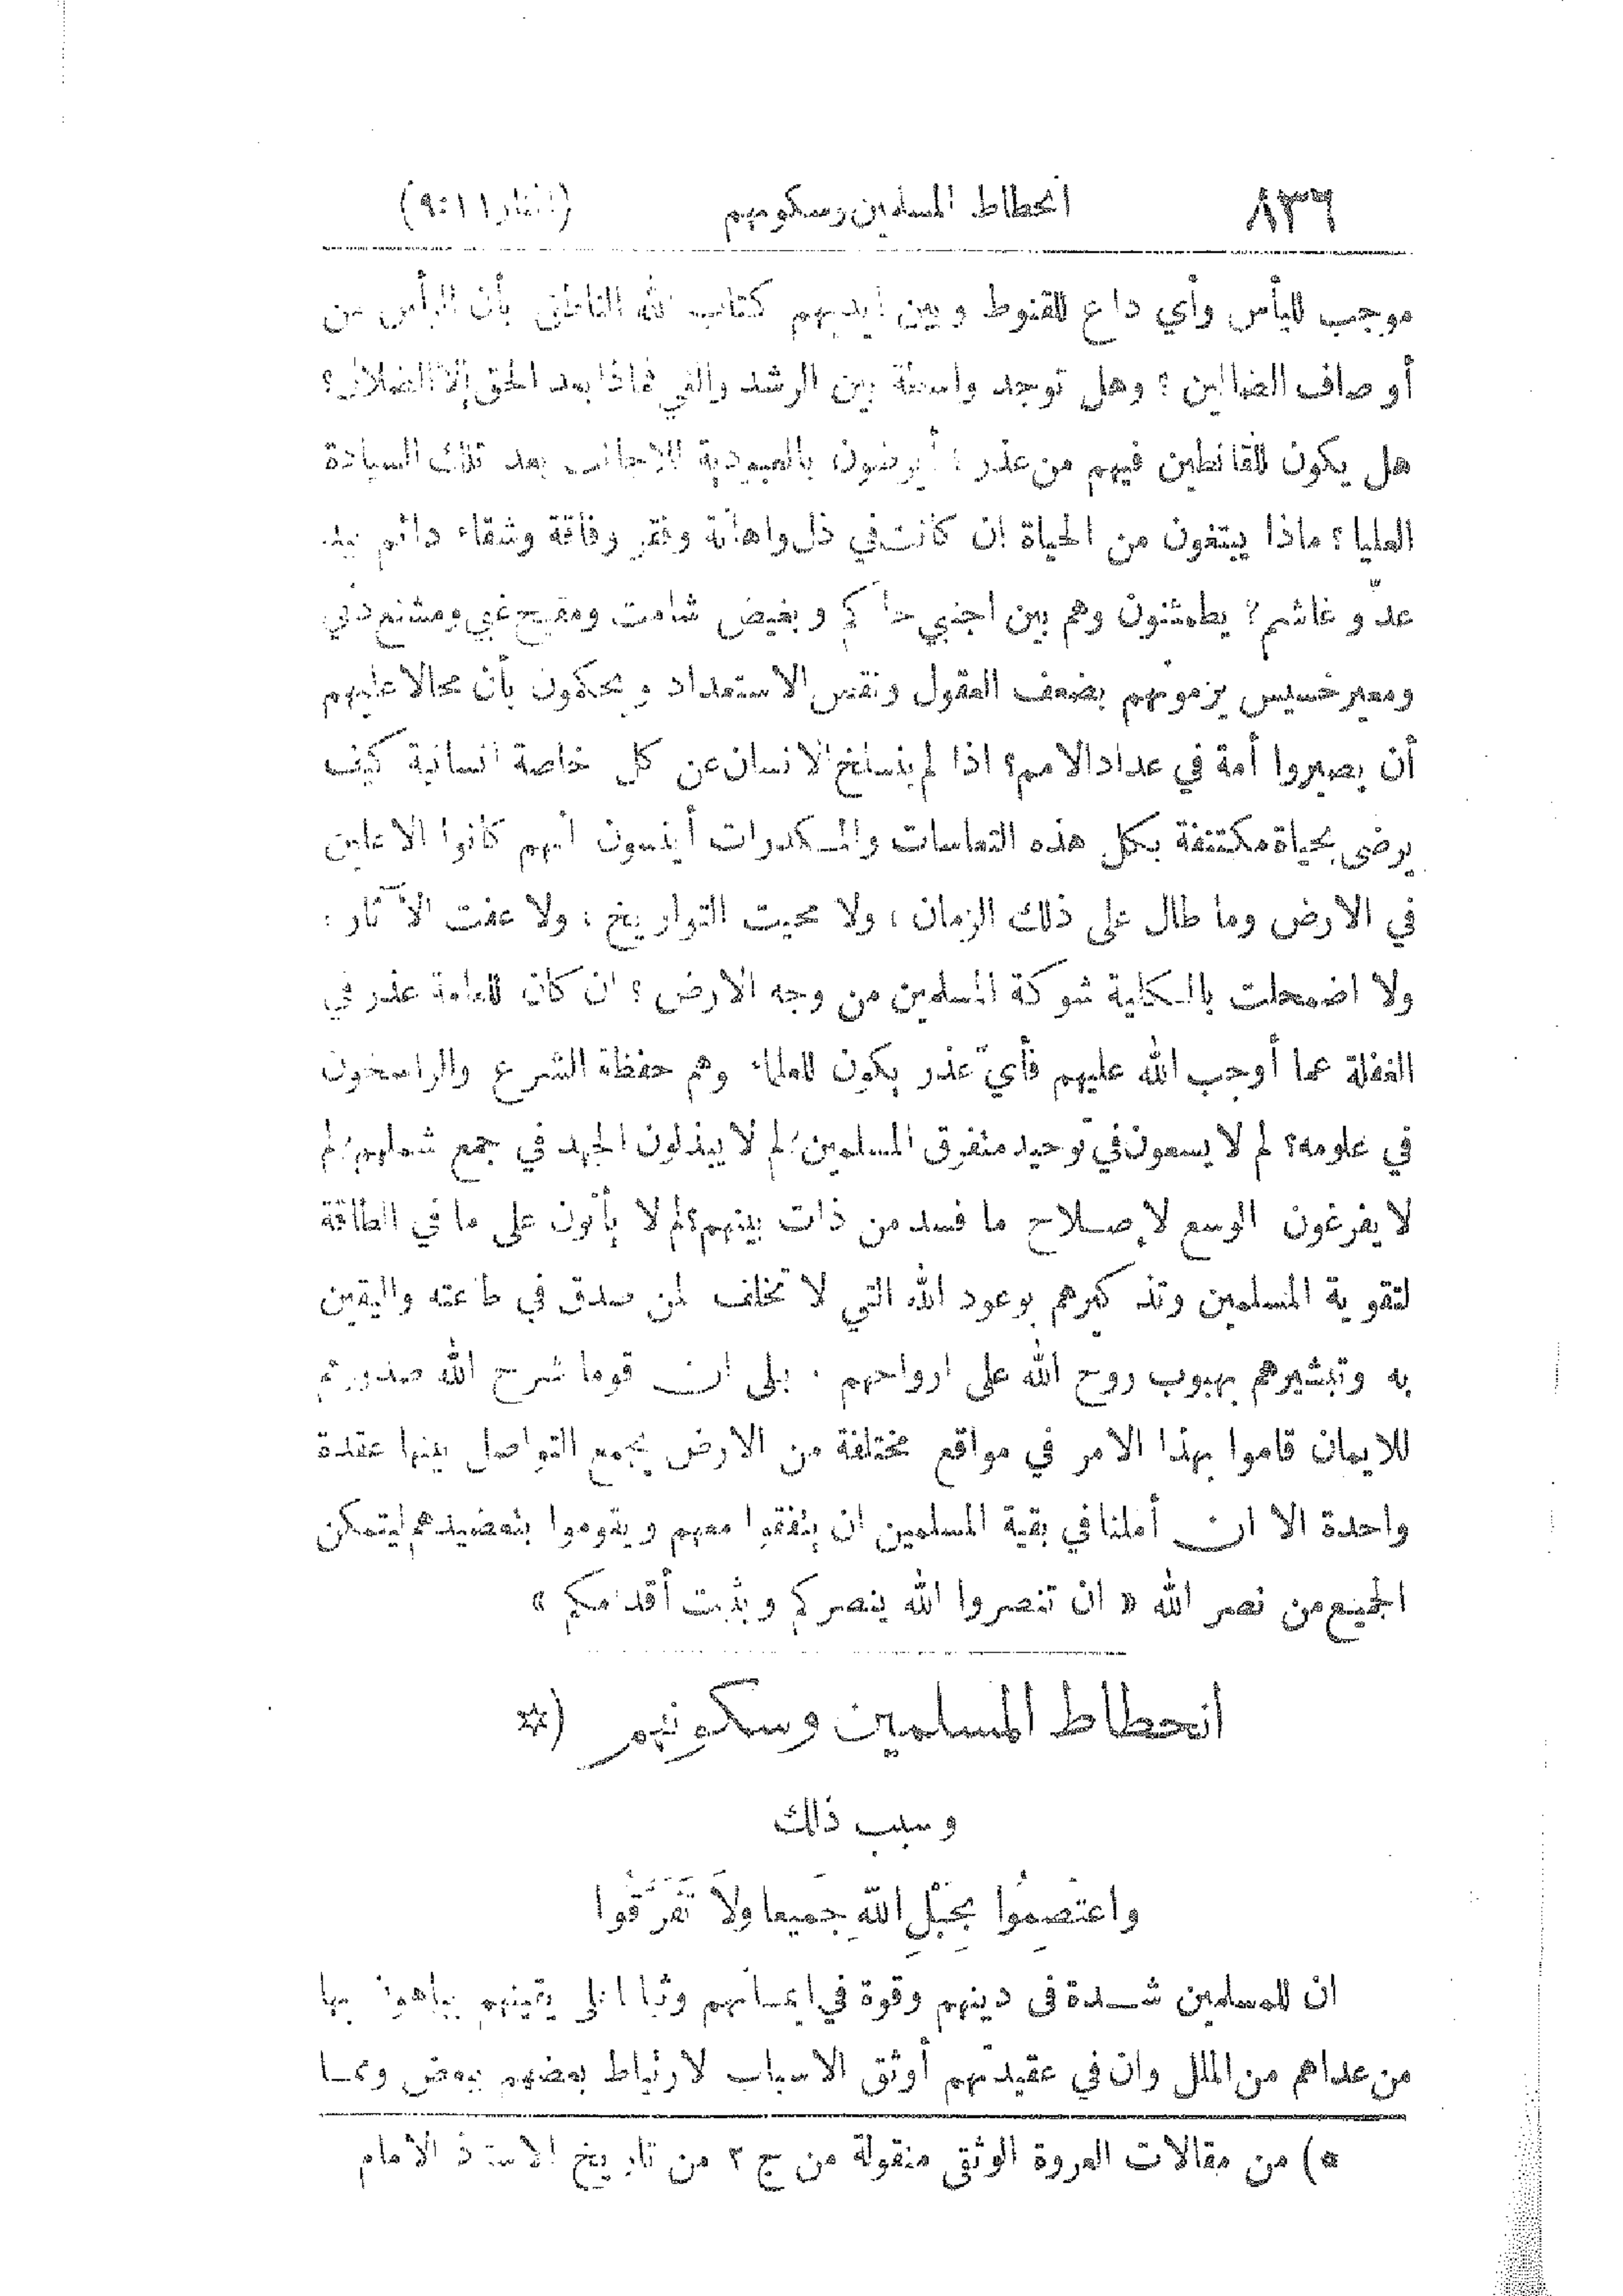 ٨٣٦ انحطاط المسلمين وسكونهم (المنار ١١:٩)
موجب لليأس وأي داع للقنوط وبين أيديهم كتاب الله الناطق بأن اليأس من
أوصاف الضالين؟ وهل توجد واسطة بين الرشد والغي فماذا بعد الحق إلا الضلال؟
هل يكون للقانطين فيهم من عذر؟ أيرضون بالعبودية للاجانب بعد تلك السيادة
العليا؟ ماذا يبتغون من الحياة ان كانت في ذل واهانة وفقر وفاقة وشقاء دائم بيد
عدو غاشم؟ يطمئنون وهم بين اجنبي حاكم وبغيض شامت ومقبح غبي ومشنع دني
ومعير خسيس يرمونهم بضعف العقول ونقص الاستعداد ويحكمون بأن محالا عليهم
أن يصيروا أمة في عداد الامم؟ اذا لم ينسلخ الانسان عن كل خاصة انسانية كيف
يرضى بحياة مكتنفة بكل هذه التعاسات والمكدرات أينسون أنهم كانوا الاعلين
في الارض وما طال على ذلك الزمان، ولا محيت التواريخ، ولا عفت الآثار،
ولا اضمحلت بالكلية شوكة المسلمين من وجه الارض؟ ان كان للعامة عذر في
الغفلة عما أوجب الله عليهم فأي عذر يكون للعلماء وهم حفظة الشرع والراسخون
في علومه؟ لم لا يسعون في توحيد متفرق المسلمين؟ لم لا يبذلون الجهد في جمع شملهم؟ لم
لا يفرغون الوسع لإصلاح ما فسد من ذات بينهم؟ لم لا يأتون على ما في الطاقة
لتقوية المسلمين وتذكيرهم بوعود الله التي لا تخلف لمن صدق في طاعته واليقين
به وتبشيرهم بهبوب روح الله على ارواحهم. بلى ان قوما شرح الله صدورهم
للايمان قاموا بهذا الامر في مواقع مختلفة من الارض يجمع التواصل بينها عقدة
واحدة الا ان أملنا في بقية المسلمين ان يتفقوا معهم ويقوموا بتعضيدهم ليتمكن
الجميع من نصر الله « ان تنصروا الله ينصركم ويثبت أقدامكم »
انحطاط المسلمين وسكونهم (*
وسبب ذلك
واعتصِمُوا بِحَبْلِ اللهِ جميعا ولاَ تَفَرَّقُوا
ان للمسلمين شدة في دينهم وقوة في ايمانهم وثباتا على يقينهم يباهون بها
من عداهم من الملل وان في عقيدتهم أوثق الاسباب لارتباط بعضهم ببعض ومما
*) من مقالات العروة الوثقى منقولة من ج ٢ من تاريخ الاستاذ الامام